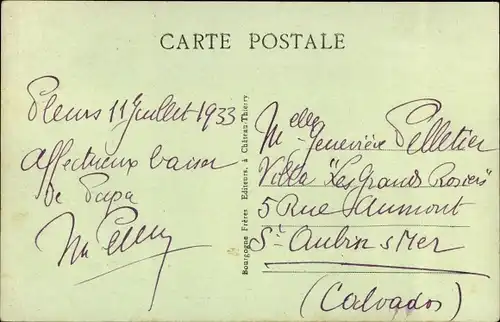 CARTE POSTALE
Fleurs 11 Juillet 1933
Affectueux baiser
de Papa
Bourgogne Frères Editeurs, à Château-Thierry
Melle Geneviève Pelletier
Villa "Les Grands Rosiers"
5 Rue Aumont
St Aubin s Mer
(Calvados)